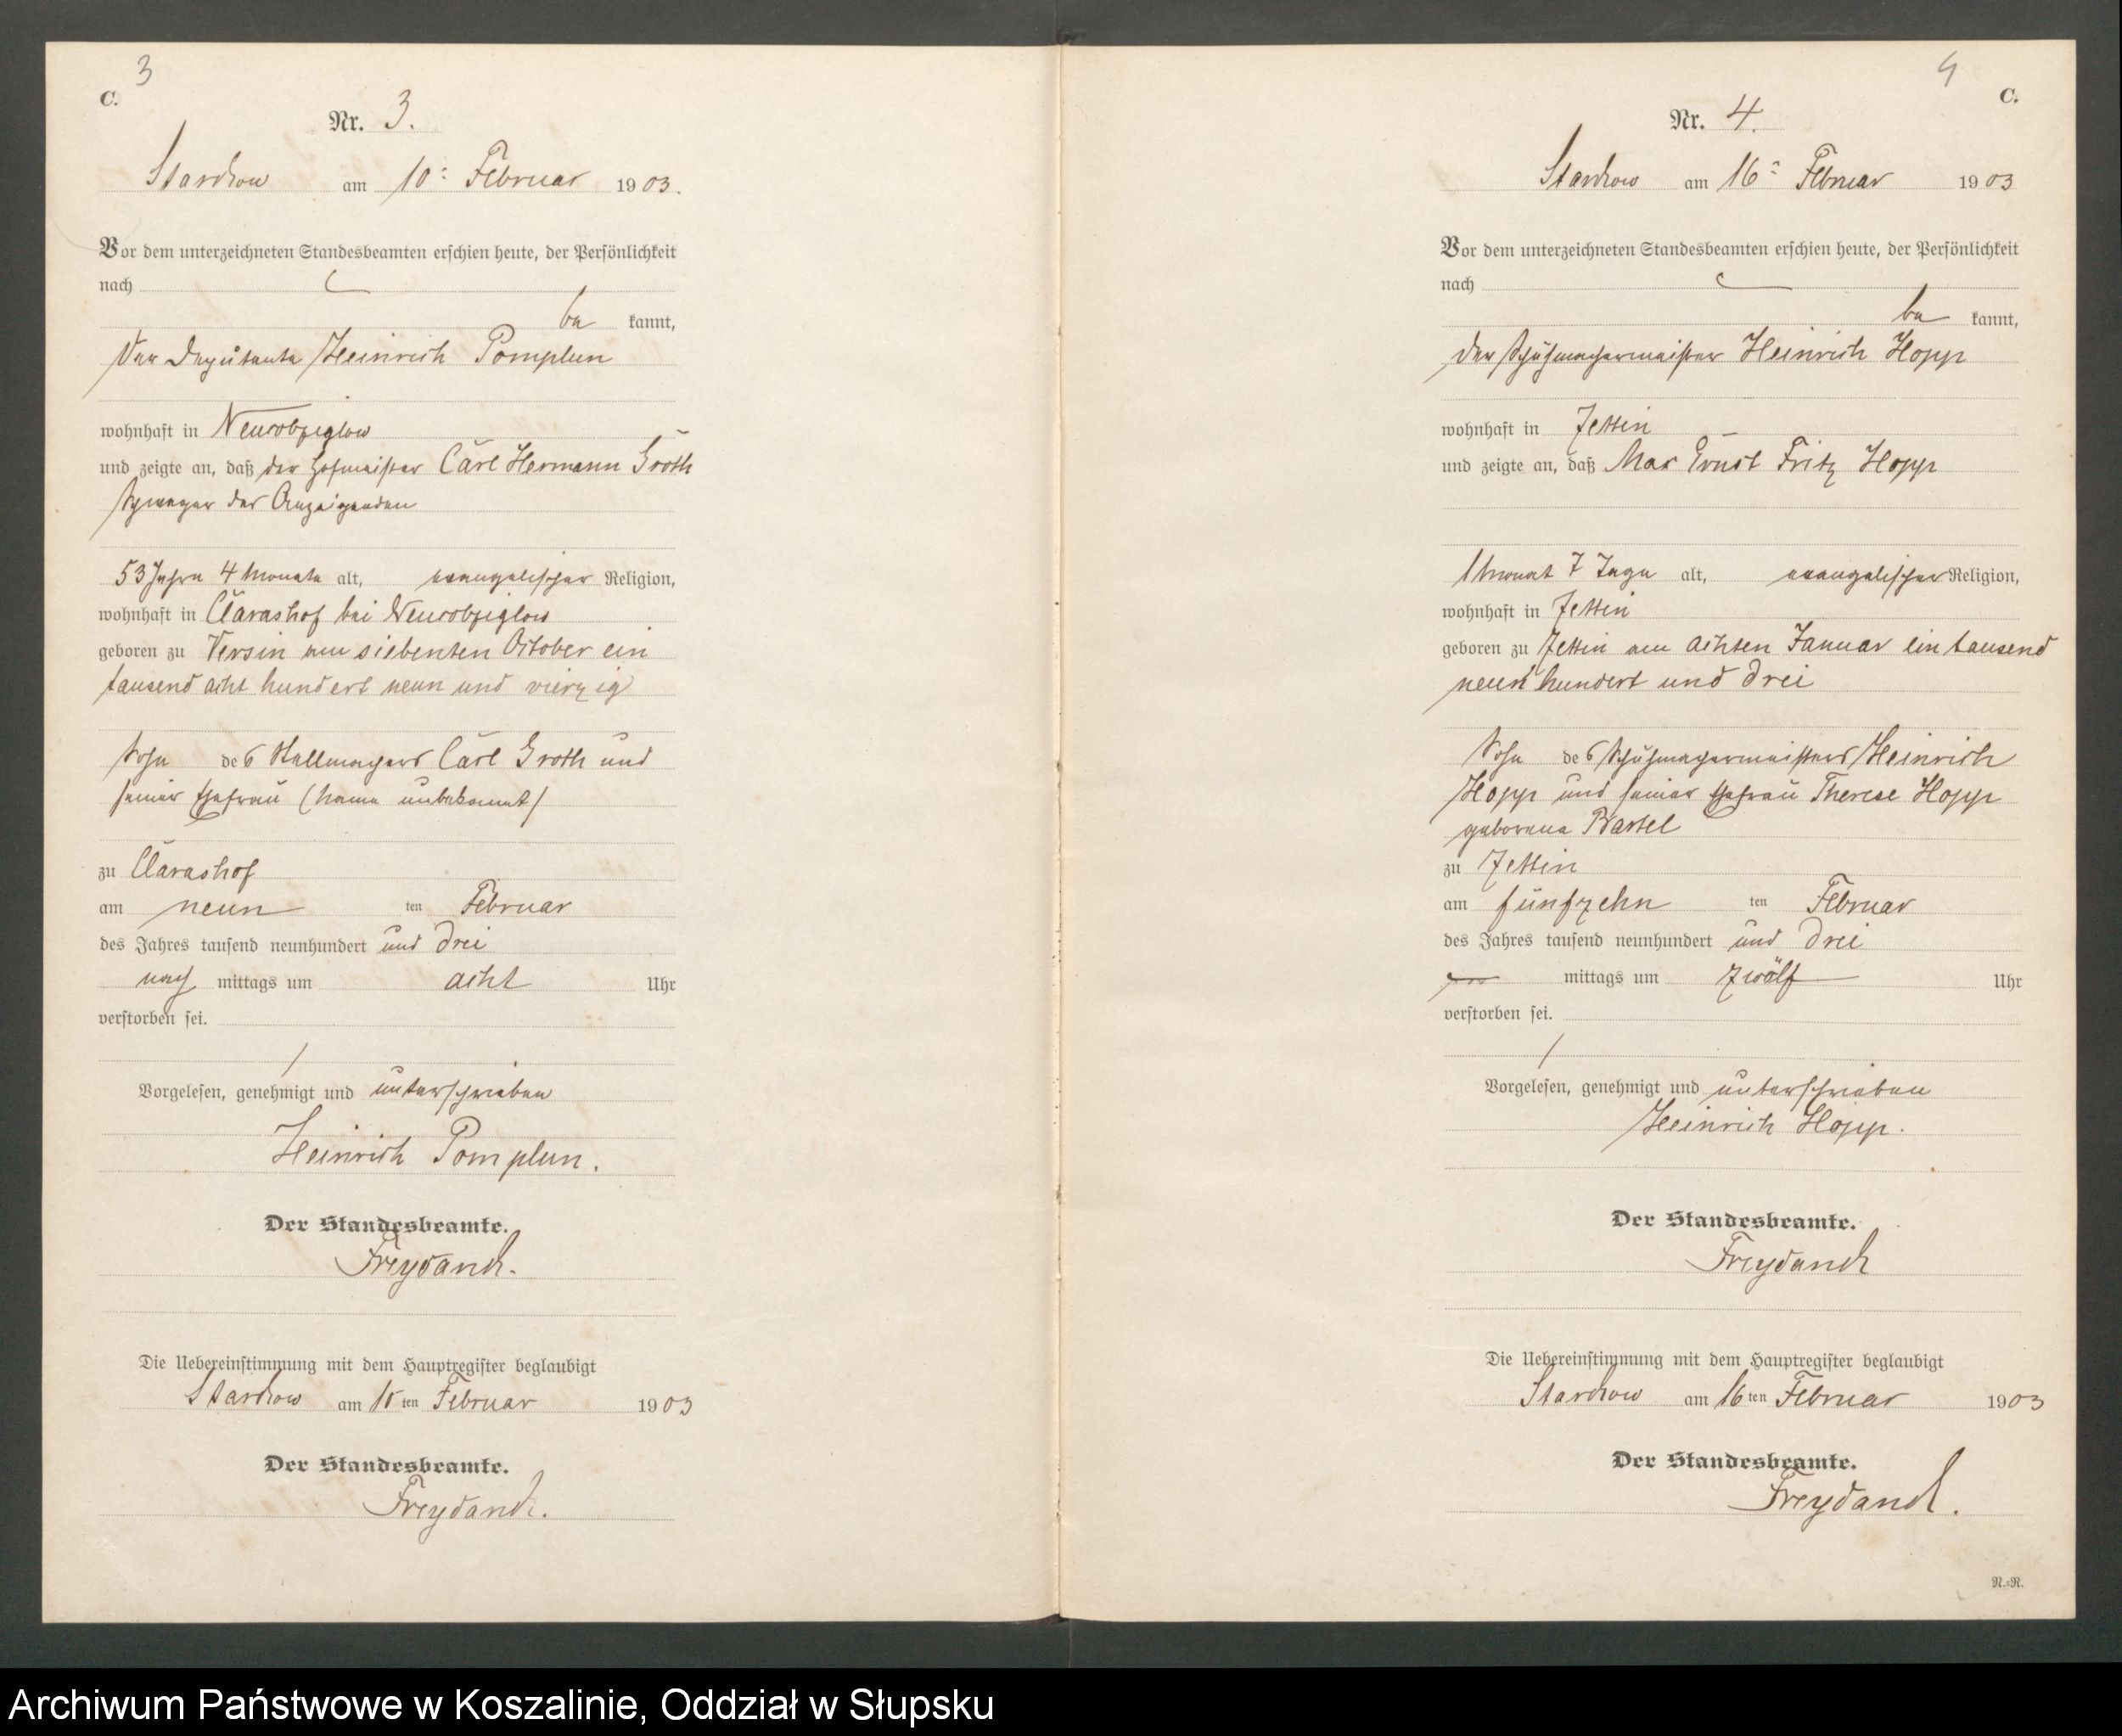 3
C.
Nr. 3.
Starckow am 10ten Februar 1903.
Vor dem unterzeichneten Standesbeamten erschien heute, der Persönlichkeit
nach
be kannt,
der Deputante Heinrich Pomplun
wohnhaft in Neurobziglow
und zeigte an, daß der Hofmeister Carl Hermann Groth
Schwager des Anzeigenden
53 Jahre 4 Monate alt, evangelischer Religion,
wohnhaft in Clarashof bei Neurobziglow
geboren zu Versin am siebenten October ein
tausend acht hundert neun und vierzig
Sohn des Stellmachers Carl Groth und
seiner Ehefrau (Name unbekannt)
zu Clarashof
am neun ten Februar
des Jahres tausend neunhundert und drei
nach mittags um acht Uhr
verstorben sei.
Vorgelesen, genehmigt und unterschrieben
Heinrich Pomplun.
Der Standesbeamte.
Freydanck.
Die Uebereinstimmung mit dem Hauptregister beglaubigt
Starckow am 10 ten Februar 1903
Der Standesbeamte.
Freydanck.
4
C.
Nr. 4.
Starckow am 16ten Februar 1903
Vor dem unterzeichneten Standesbeamten erschien heute, der Persönlichkeit
nach
be kannt,
der Schuhmachermeister Heinrich Hopp
wohnhaft in Zettin
und zeigte an, daß Max Ernst Fritz Hopp
1 Monat 7 Tage alt, evangelischer Religion,
wohnhaft in Zettin
geboren zu Zettin am achten Januar ein tausend
neun hundert und drei
Sohn des Schuhmachermeisters Heinrich
Hopp und seiner Ehefrau Therese Hopp
geborene Bartel
zu Zettin
am fünfzehn ten Februar
des Jahres tausend neunhundert und drei
mittags um zwölf Uhr
verstorben sei.
Vorgelesen, genehmigt und unterschrieben
Heinrich Hopp.
Der Standesbeamte.
Freydanck
Die Uebereinstimmung mit dem Hauptregister beglaubigt
Starckow am 16 ten Februar 1903
Der Standesbeamte.
Freydanck.
N.=N.
Archiwum Państwowe w Koszalinie, Oddział w Słupsku